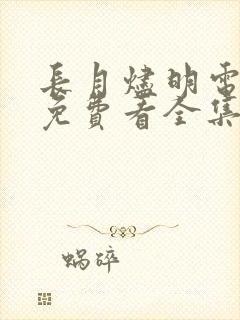 長月燼明電
免費看全集
蝸碎